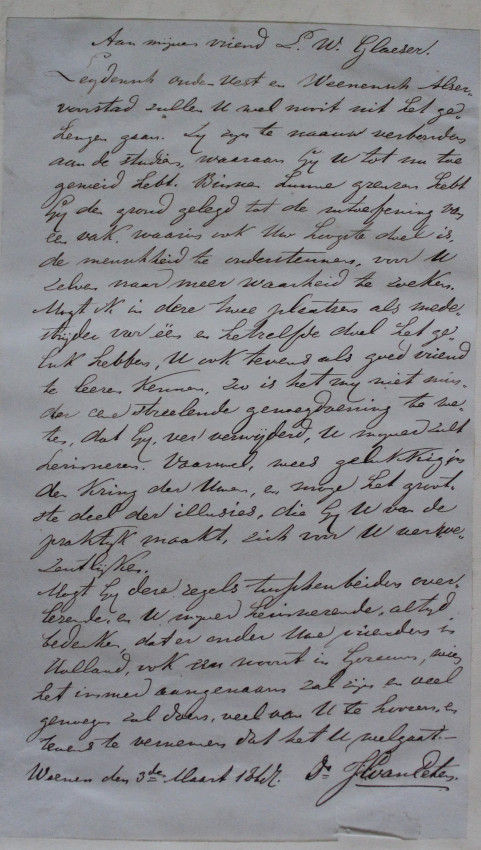 Aan mijnen vriend L. W. Glaeser.
Leydensch onder Vest en Weenensch Alser-
voorstad zullen U wel nooit uit het ge-
heugen gaan. Zy zyn te naauw verbonden
aan de studien, waaraan Gy U tot nu toe
geweid hebt. Binnen hunne grenzen hebt
Gy den grond gelegd tot de uitoefening van
een vak, waarin ook Uw hoogste doel is,
de menschheid te ondersteunen, voor U
zelven naar meer waarheid te zoeken.
Mogt ik in deze twee plaatsen als mede-
strijder voor één en hetzelfde doel het ge-
luk hebben, U ook tevens als goed vriend
te leeren kennen, zo is het my niet min-
der eene streelende genoegdoening te we-
ten, dat Gy, ver verwyderd, U mijner zult
herinneren. Vaarwel, wees gelukkig in
den Kring der Uwen, en moge het groot-
ste deel der illusies, die Gy U van de
praktijk maakt, zich voor U verwe-
zentlijken.
Mogt Gy deze regels tusschenbeiden over-
lezende, en U mijner herinnerende, altyd
bedenken, dat er onder Uwe vrienden in
Holland, ook een woont in, wien
het immer aangenaam zal zijn en veel
genoegen zal doen, veel van U te hooren, en
tevens te vernemen dat het U welgaat.—
Weenen den 3den Maart Dr